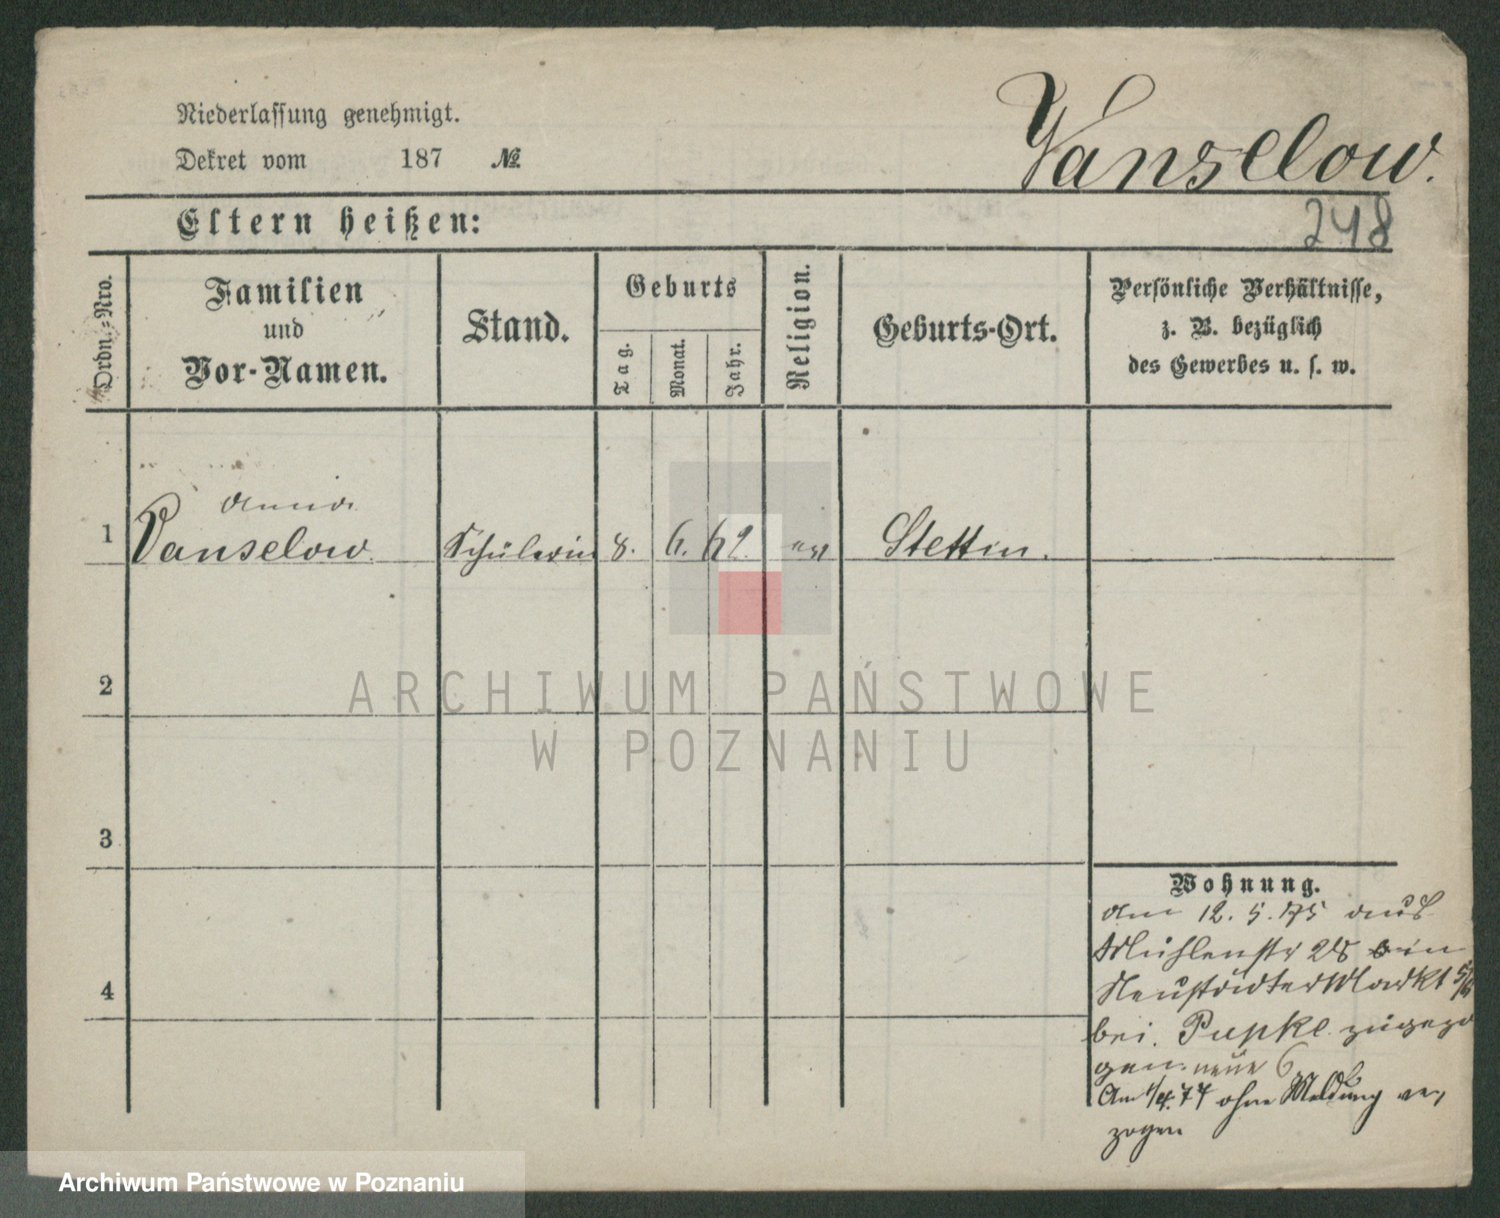 Niederlassung genehmigt.
Dekret vom 187 №
Vanselow.
Eltern heißen:
248
Ordn.-Nro.
Familien
und
Vor-Namen.
Stand.
Geburts
Tag.
Monat.
Jahr.
Religion.
Geburts-Ort.
Persönliche Verhältnisse,
z. B. bezüglich
des Gewerbes u. s. w.
Anna
1 Vanselow. Schülerin 8. 6. 62. ev Stettin.
2
ARCHIWUM PAŃSTWOWE
W POZNANIU
3
Wohnung.
Am 12. 5. 75 aus
Mühlenstr 28 in
Neustädter Markt
4
bei Pupke zugezo
gen. neue 6
Am 1/4. 77 ohne Meldung ver
zogen
Archiwum Państwowe w Poznaniu